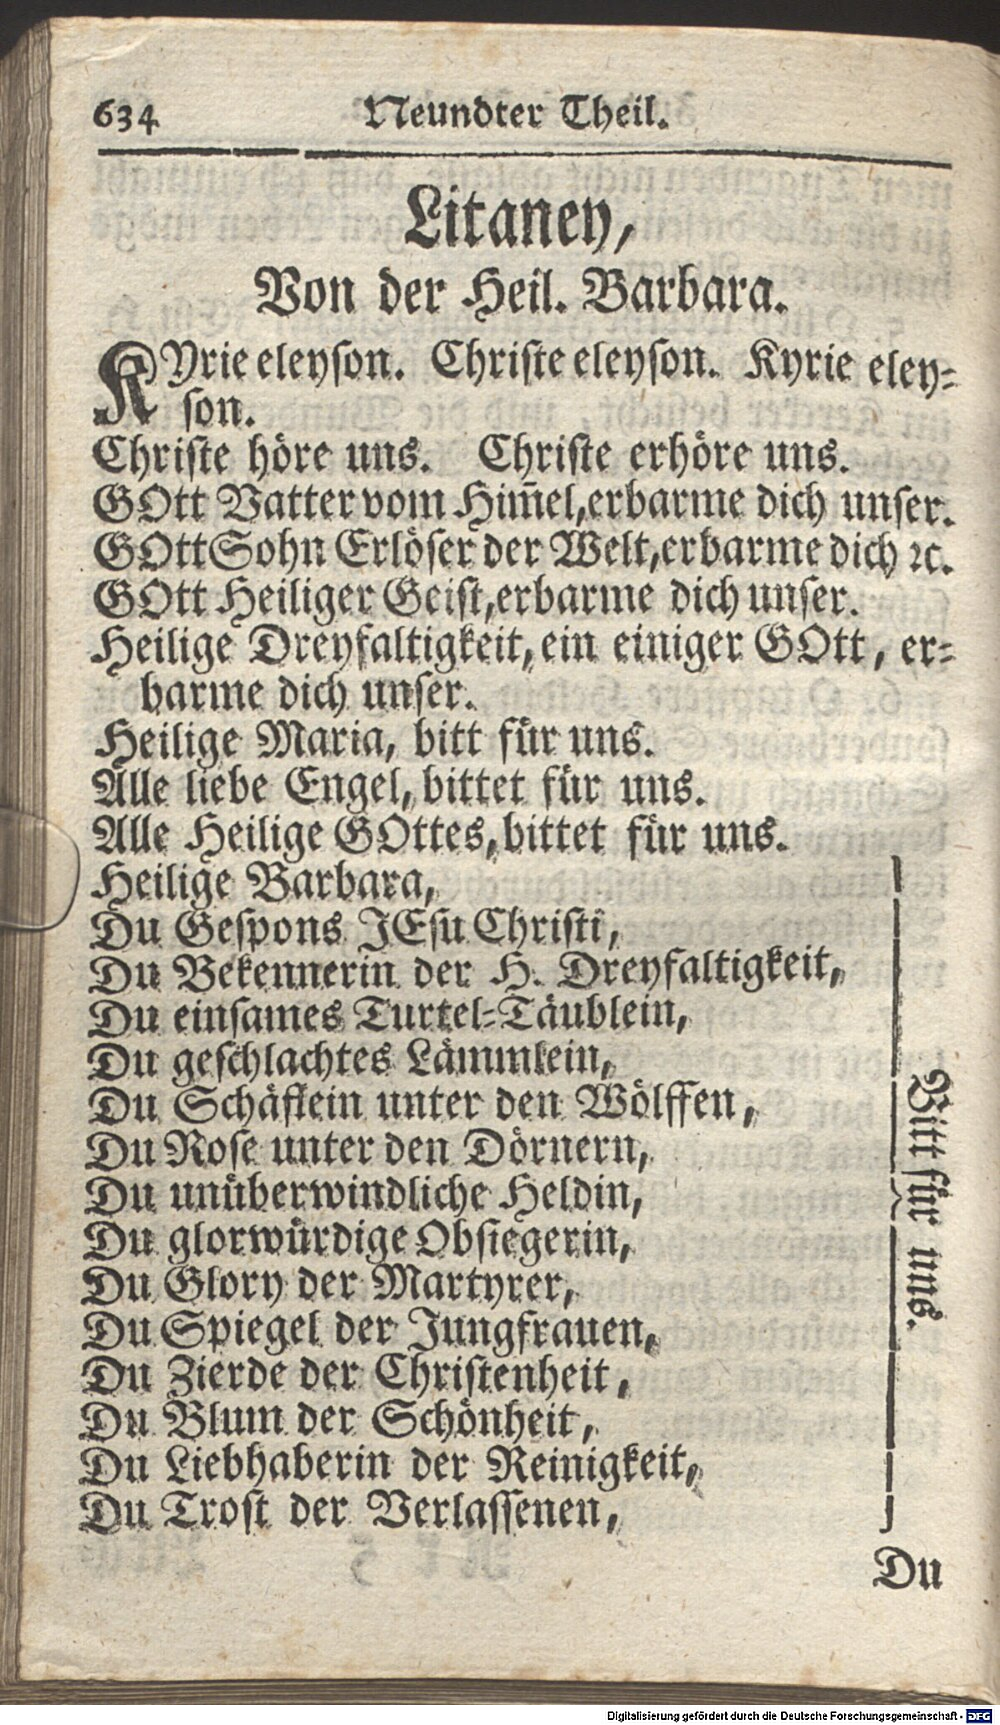 634 Neundter Theil.
Litaney,
Von der Heil. Barbara.
KYrie eleyson. Christe eleyson. Kyrie eley-
son.
Christe höre uns. Christe erhöre uns.
GOtt Vatter vom Him̃el, erbarme dich unser.
GOtt Sohn Erlöser der Welt, erbarme dich ꝛc.
GOtt Heiliger Geist, erbarme dich unser.
Heilige Dreyfaltigkeit, ein einiger GOtt, er-
barme dich unser.
Heilige Maria, bitt für uns.
Alle liebe Engel, bittet für uns.
Alle Heilige GOttes, bittet für uns.
Heilige Barbara,
Du Gespons JEsu Christi,
Du Bekennerin der H. Dreyfaltigkeit,
Du einsames Turtel-Täublein,
Du geschlachtes Lämmlein,
Du Schäflein unter den Wölffen,
Du Rose unter den Dörnern,
Du unüberwindliche Heldin,
Du glorwürdige Obsiegerin,
Du Glory der Martyrer,
Du Spiegel der Jungfrauen,
Du Zierde der Christenheit,
Du Blum der Schönheit,
Du Liebhaberin der Reinigkeit,
Du Trost der Verlassenen,
Bitt für uns.
Du
Digitalisierung gefördert durch die Deutsche Forschungsgemeinschaft - DFG